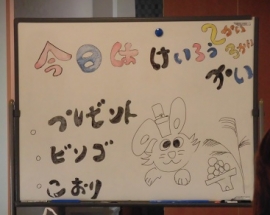 今日は けいろう
2かい
3かい
かい
プレゼント
ビンゴ
こおり